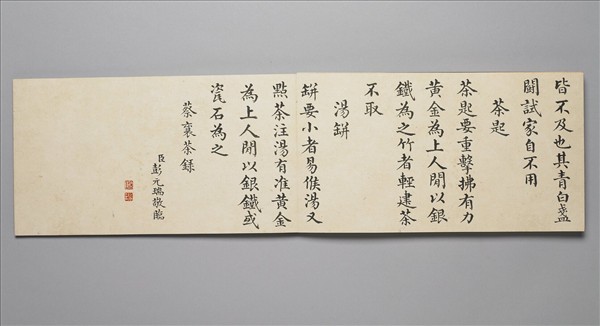 皆不及也其青白盞
鬪試家自不用
茶匙
茶匙要重擊拂有力
黃金為上人閒以銀
鐵為之竹者輕建茶
不取
湯缾
缾要小者易候湯又
點茶注湯有准黃金
為上人閒以銀鐵或
瓷石為之
蔡襄茶錄
臣彭元瑞敬臨